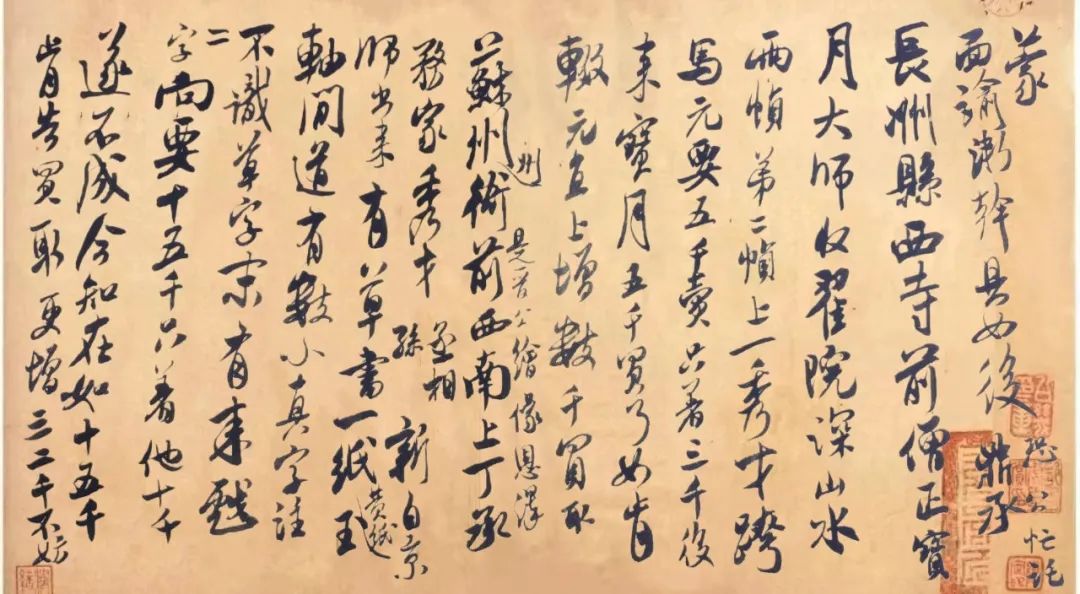 蒙
面諭浙幹具如後
恐公忙託
鼎承
長洲縣西寺前僧正寶
月大師收翟院深山水
兩幀第二幀上一秀才跨
馬元要五千賣只著三千後
来寶月五千買了如肯
輟元直上增數千買取
州
是晉公繪像恩澤
蘇州衙前西南上丁承
務家秀才
丞相
孫
新自京
師出来有草書一紙
玉
軸間道有數小真字注
不識草字末有来戲
二
字尚要十五千只著他十千
遂不成今知在如十五千
肯告買取更增三二千不妨